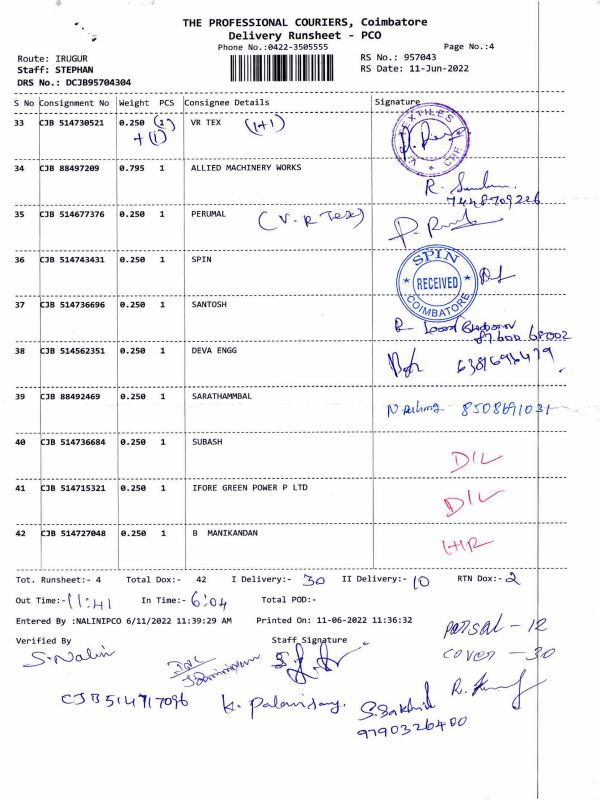 THE PROFESSIONAL COURIERS, Coimbatore
Delivery Runsheet - PCO
Phone No.:0422-3505555
Page No.:4
Route: IRUGUR
RS No.: 957043
Staff: STEPHAN
RS Date: 11-Jun-2022
DRS No.: DCJB95704304
S No Consignment No Weight PCS Consignee Details Signature
33 CJB 514730521 0.250 (1) VR TEX (1+1)
+(1)
TEXTILES
34 CJB 88497209 0.795 1 ALLIED MACHINERY WORKS
7448709226
35 CJB 514677376 0.250 1 PERUMAL (V.R Tex)
36 CJB 514743431 0.250 1 SPIN
SPIN
RECEIVED
COIMBATORE
37 CJB 514736696 0.250 1 SANTOSH
38 CJB 514562351 0.250 1 DEVA ENGG
39 CJB 88492469 0.250 1 SARATHAMMBAL
8508691031
40 CJB 514736684 0.250 1 SUBASH
D/L
41 CJB 514715321 0.250 1 IFORE GREEN POWER P LTD
D/L
42 CJB 514727048 0.250 1 B MANIKANDAN
Tot. Runsheet:- 4 Total Dox:- 42 I Delivery:- 30 II Delivery:- 10 RTN Dox:- 2
Out Time:- 11:41 In Time:- 6:04 Total POD:-
Entered By :NALINIPCO 6/11/2022 11:39:29 AM Printed On: 11-06-2022 11:36:32
Parsal - 12
Verified By Staff Signature
cover - 30
S. Nalin
CJB514717096
9790326400